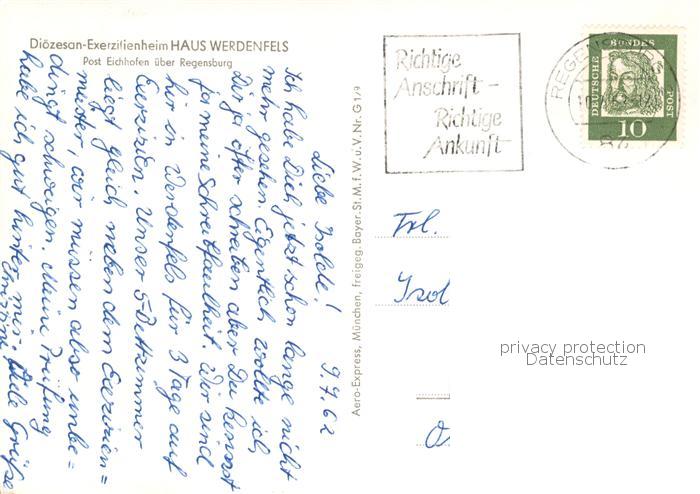 Diözesan-Exerzitienheim HAUS WERDENFELS
Post Eichhofen über Regensburg
Liebe Isolde! 9.7.62
Ich habe Dich jetzt schon lange nicht
mehr gesehen. Eigentlich wollte ich
Dir ja öfter schreiben aber Du kennst
ja meine Schreibfaulheit. Wir sind
hir in Werdenfels für 3 Tage auf
Exerzizien. Unser 5-Bettzimmer
liegt gleich neben dem Exerzizien=
meister, wir müssen also unbe=
dingt schweigen. Meine Prüfung
habe ich gut hinter mir. Viele Grüße
Christine
Aero-Express, München, freigeg. Bayer. St. M. f. W. u. V. Nr. G 1/9
Richtige
Anschrift –
Richtige
Ankunft
REGENSBURG
DEUTSCHE BUNDES POST
10
Frl.
Isol
privacy protection
Datenschutz